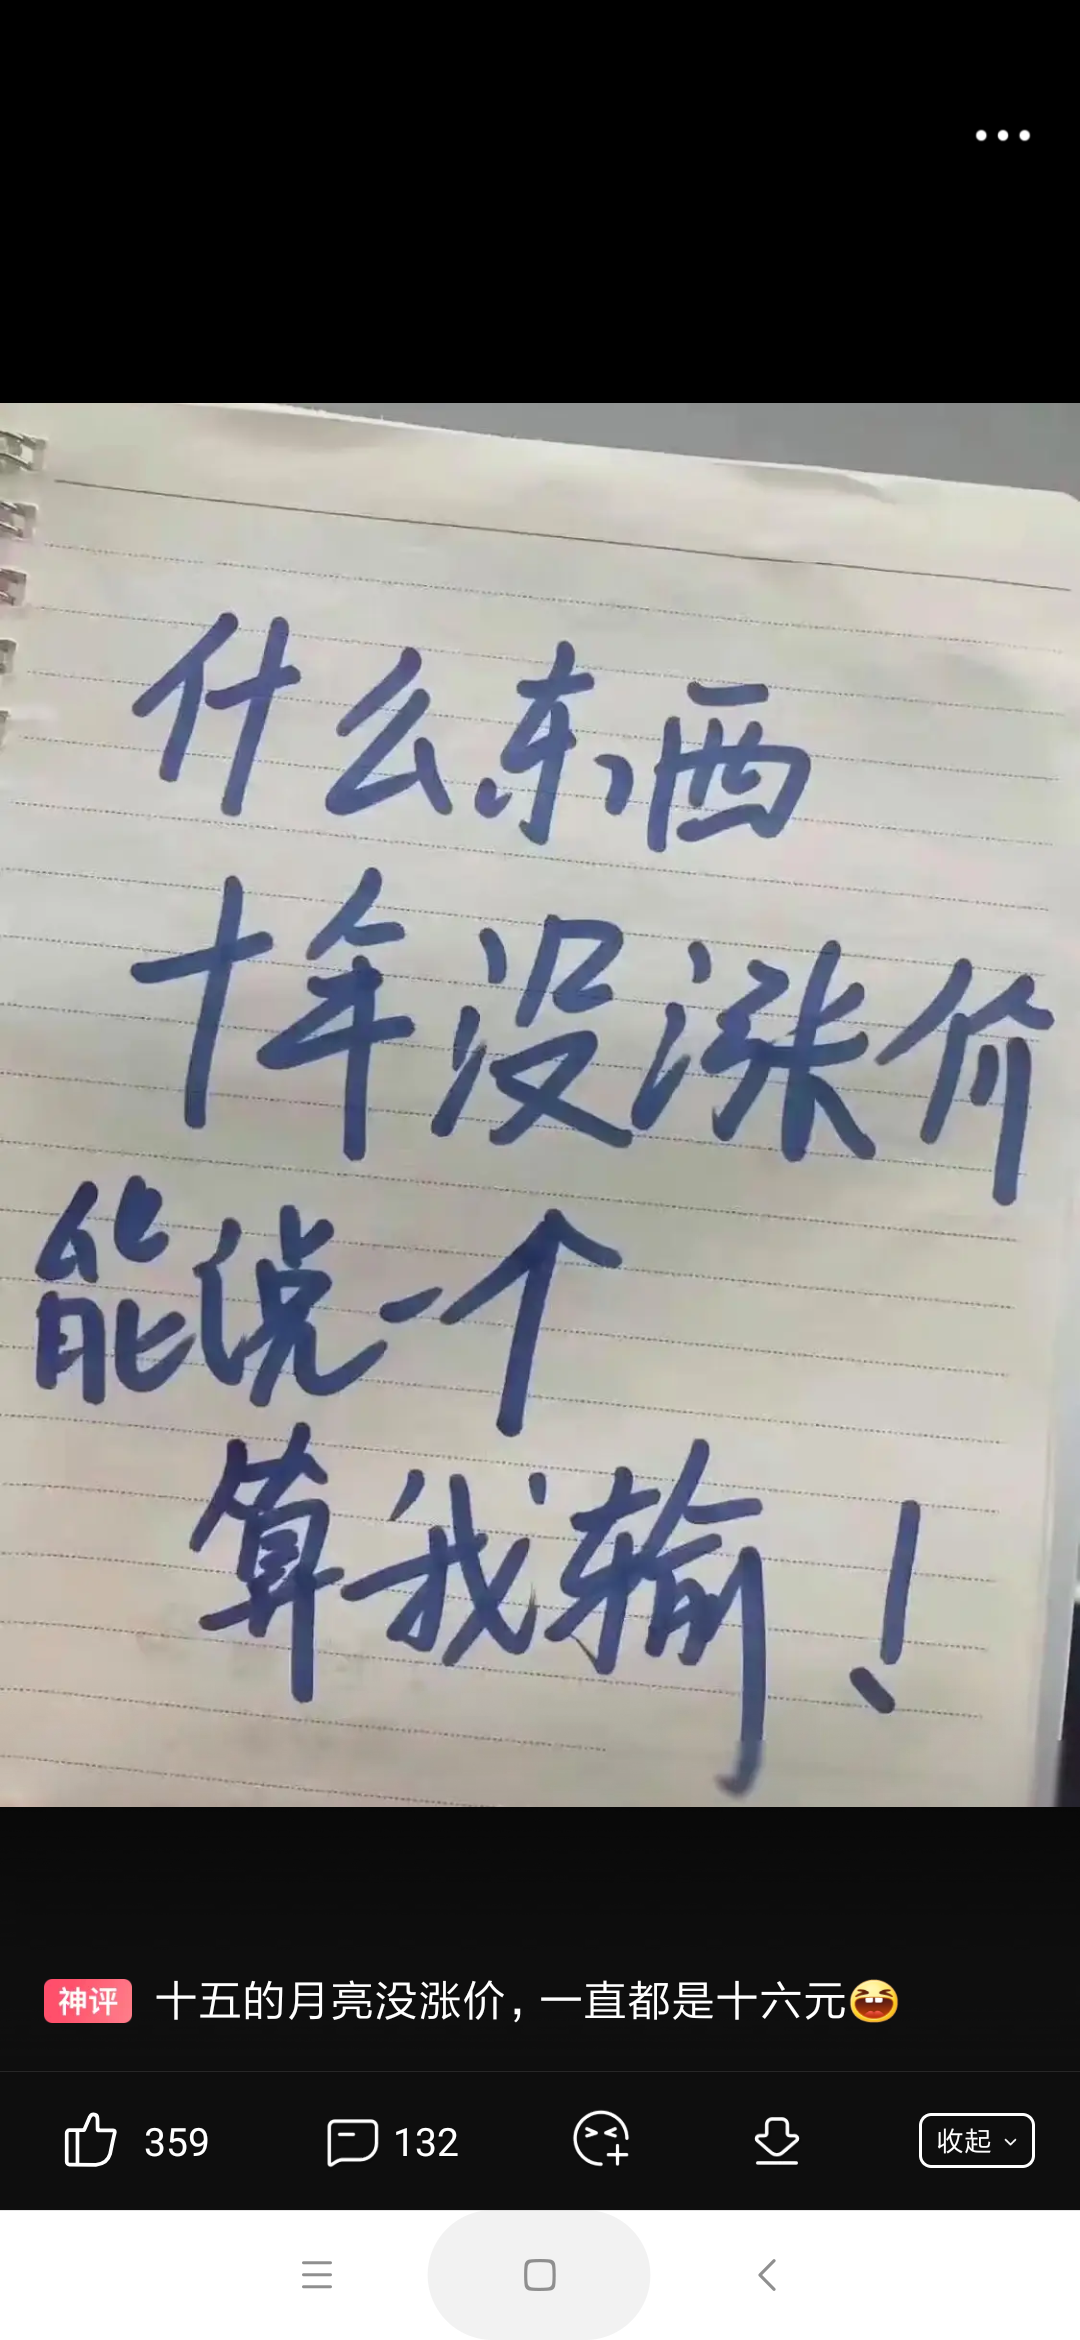 什么东西
十年没涨价
能说一个
算我输！
神评 十五的月亮没涨价，一直都是十六元😆
359 132 收起